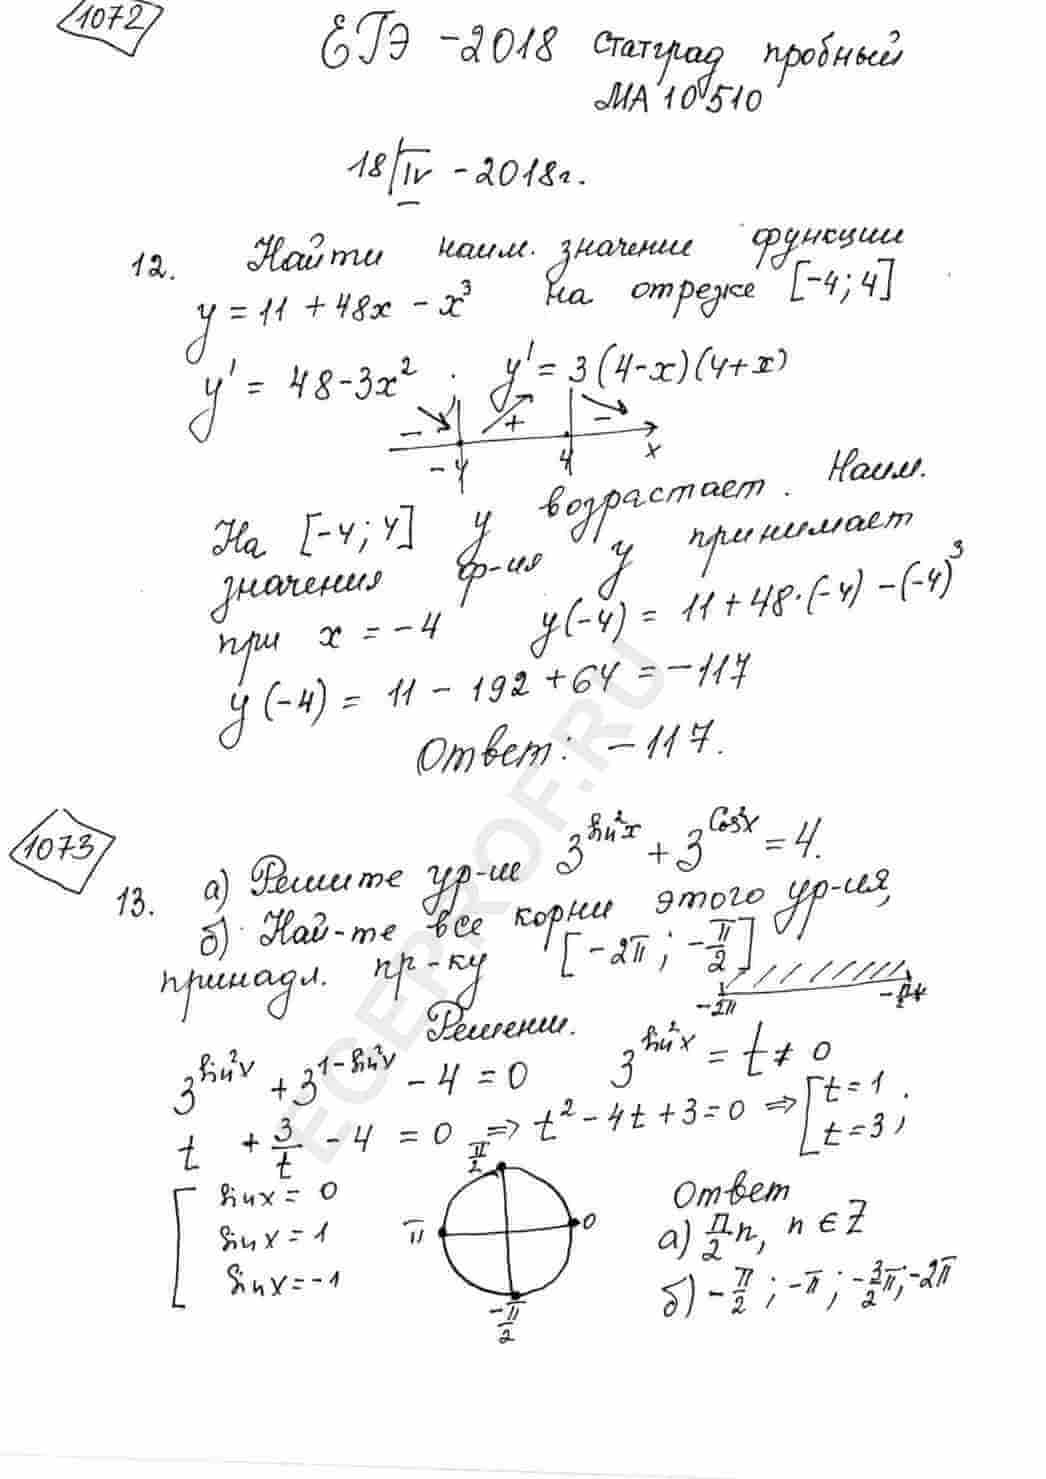 1072
ЕГЭ - 2018 Статград пробный
МА 10510
18/IV - 2018г.
12. Найти наим. значение функции
y = 11 + 48x - x³ на отрезке [-4; 4]
y' = 48 - 3x². y' = 3(4-x)(4+x)
- + -
-4 4 x
На [-4; 4] y возрастает. Наим.
значения ф-ия y принимает
при x = -4 y(-4) = 11 + 48·(-4) - (-4)³
y(-4) = 11 - 192 + 64 = -117
Ответ: -117.
1073
13. а) Решите ур-ие 3^{sin²x} + 3^{cos²x} = 4.
б) Най-те все корни этого ур-ия,
принадл. пр-ку [-2π; -π/2]
-2π -π/2
Решени.
3^{sin²x} + 3^{1-sin²x} - 4 = 0 3^{sin²x} = t ≠ 0
t + 3/t - 4 = 0 => t² - 4t + 3 = 0 => [ t = 1; t = 3;
sin x = 0
sin x = 1
sin x = -1
π/2
π 0
-π/2
Ответ
а) π/2 n, n ∈ Z
б) -π/2; -π; -3/2π; -2π
EGEPROF.RU